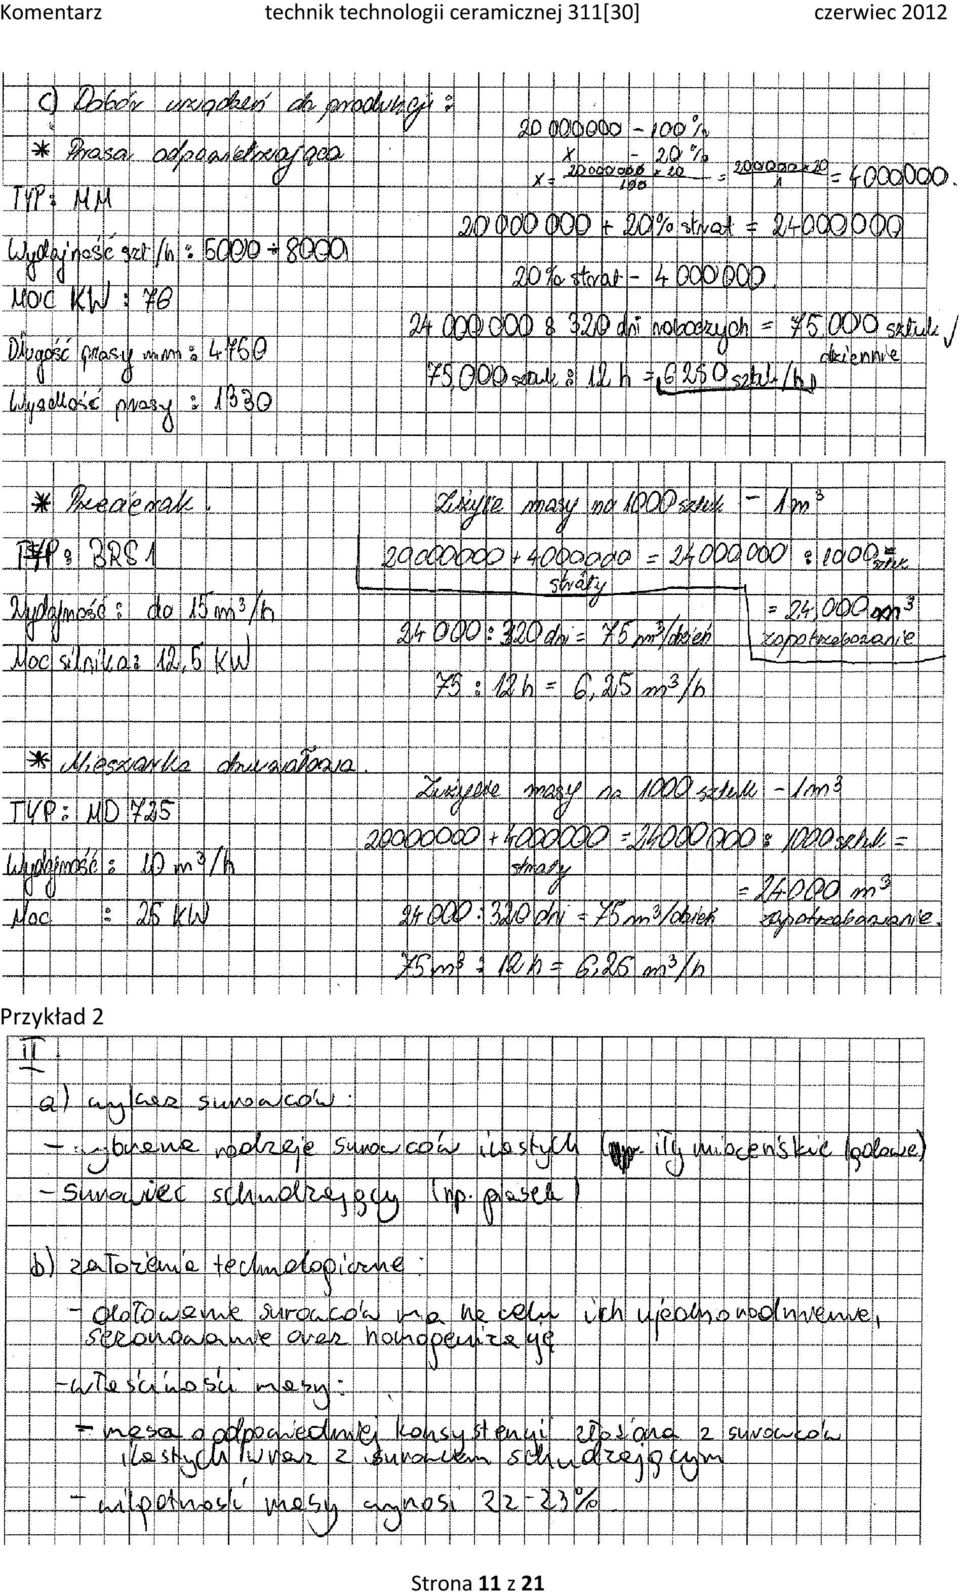 Komentarz technik technologii ceramicznej 311[30] czerwiec 2012
c) Dobór urządzeń do produkcji :
* Prasa odpowietrzająca
TYP : MM
Wydajność szt/h : 5000 ÷ 8000
MOC KW : 76
Długość prasy mm : 4750
Wysokość prasy : 1330
20 000000 - 100 %
X - 20 %
X = 20000000 x 20 / 100 = 200000 x 20 / 1 = 4000000.
20 000 000 + 20% strat = 24000000
20% strat - 4 000 000
24 000 000 : 320 dni roboczych = 75.000 sztuk /
dziennie
75.000 sztuk : 12 h = 6250 sztuk/h
* Przecierak.
TYP : BRS 1
Wydajność : do 15 m³/h
Moc silnika : 12,5 KW
Zużycie masy na 1000 sztuk - 1 m³
20000000 + 4000000 = 24000000 : 1000 sztuk
straty
= 24,000 m³
24 000 : 320 dni = 75 m³/dzień zapotrzebowanie
75 : 12 h = 6,25 m³/h
* Mieszarka dwuwałowa.
TYP : MD 725
Wydajność : 10 m³/h
Moc : 25 KW
Zużycie masy na 1000 sztuk - 1 m³
20000000 + 4000000 = 24000000 : 1000 sztuk =
straty
= 24000 m³
24 000 : 320 dni = 75 m³/dzień zapotrzebowanie.
75 m³ : 12 h = 6,25 m³/h
Przykład 2
II.
a) wykaz surowców :
- wybrane rodzaje surowców ilastych (np. iły mioceńskie lądowe)
- surowiec schudzający (np. piasek)
b) założenia technologiczne :
- dołowanie surowców ma na celu ich ujednorodnienie,
sezonowanie oraz homogenizację
- właściwości masy :
- masa o odpowiedniej konsystencji złożona z surowców
ilastych wraz z surowcem schudzającym
- wilgotność masy wynosi 22-23%
Strona 11 z 21